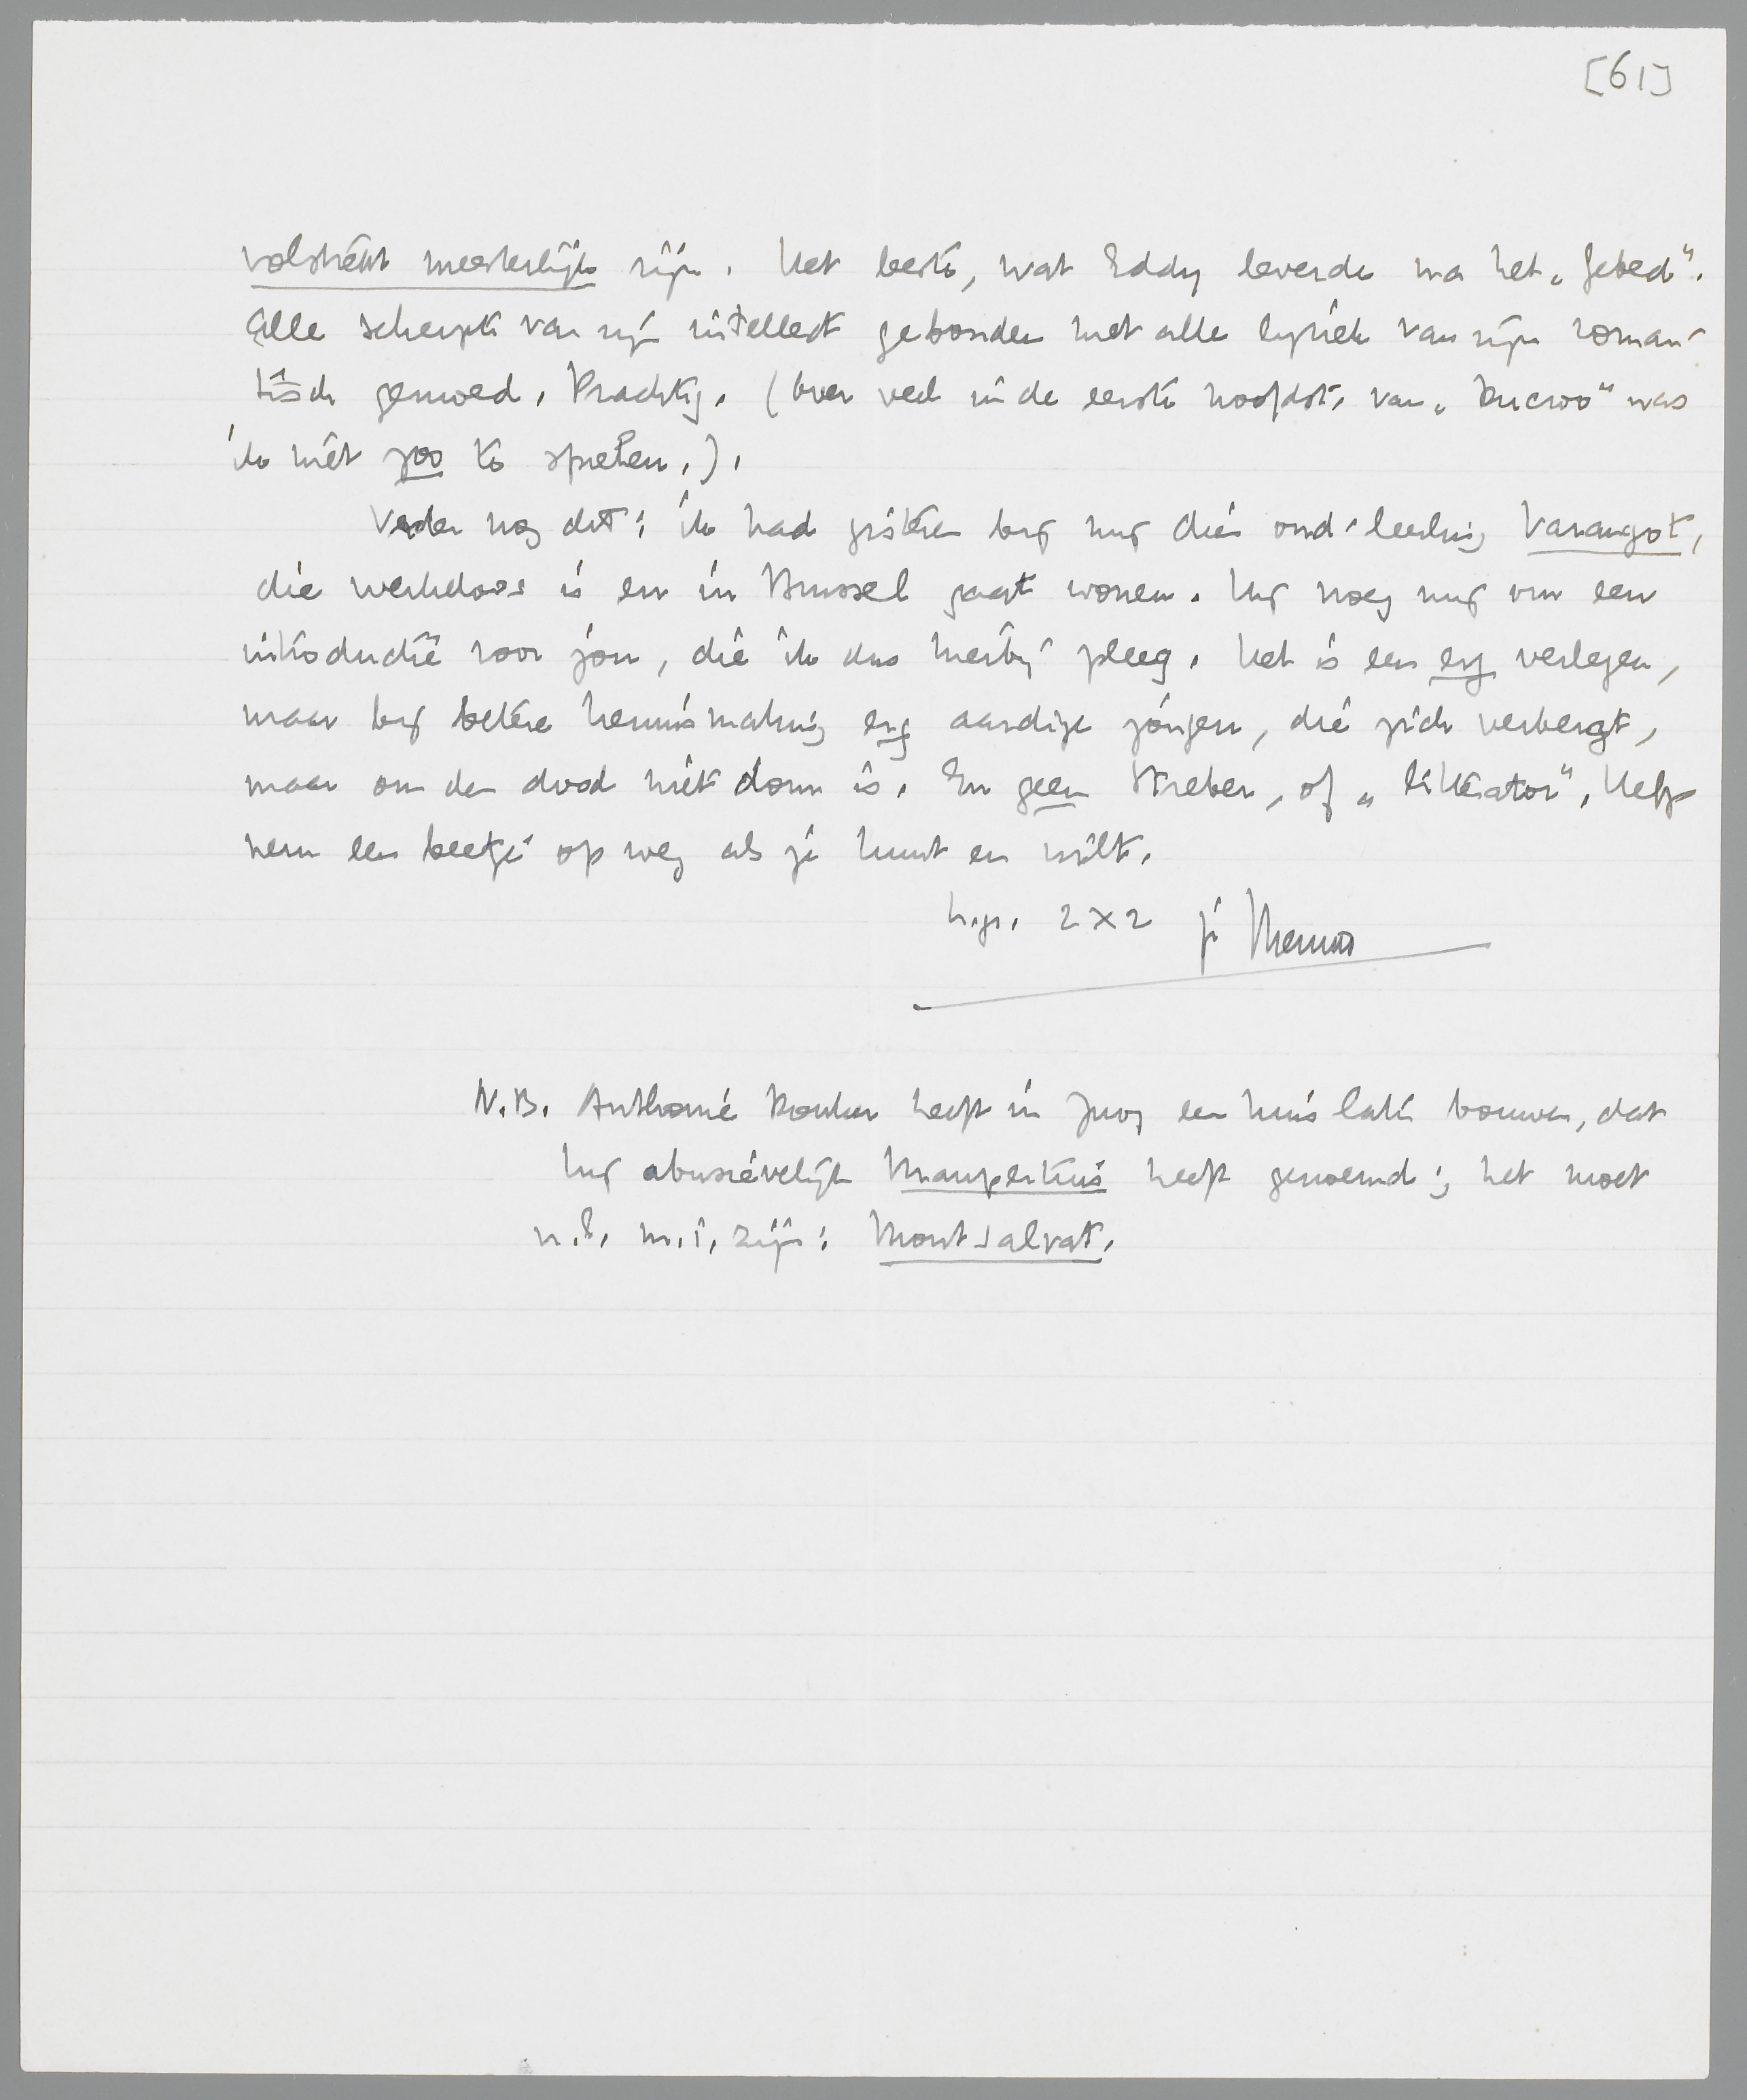 [61]
volstrekt meesterlijk zijn. Het beste, wat Eddy leverde na het „Gebed".
Alle scherpte van zijn intellect gebonden met alle lyriek van zijn roman-
tisch gemoed. Prachtig. (Over veel in de eerste hoofdst. van „Ducroo" was
ik niet zoo te spreken.).
Verder nog dit: ik had gisteren bij mij dien oud-leerling Varangot,
die werkeloos is en in Brussel gaat wonen. Hij vroeg mij om een
introductie voor jou, die ik dus hierbij pleeg. Het is een erg verlegen,
maar bij betere kennismaking erg aardige jongen, die zich verbergt,
maar om den dood niet dom is. En geen Streber, of „litterator". Help
hem een beetje op weg als je kunt en wilt.
h.gr. 2 x 2 je Menno
N.B. Anthonie Donker heeft in Zuoz een huis laten bouwen, dat
hij abusievelijk Maupertuis heeft genoemd; het moet
n.l. m.i. zijn: Montsalvat.